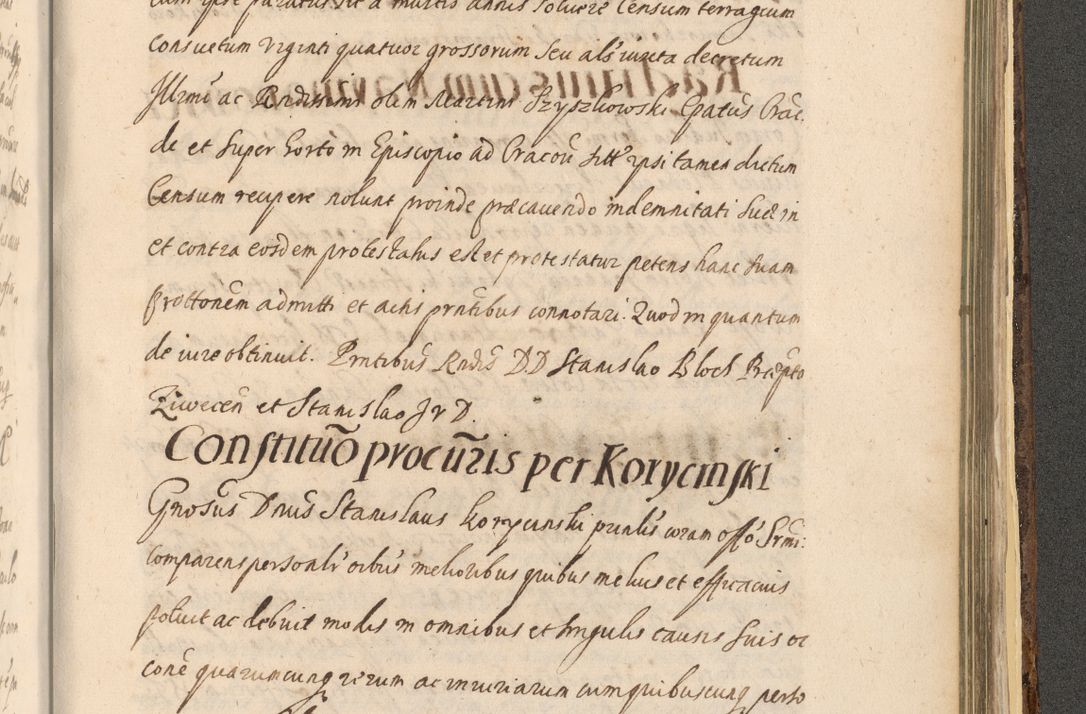 cum ipse paratus sit a multis annis soluere Censum terragium
consuetum viginti quatuor grossorum seu als iuxta decretum
Illrmi ac Rndissimi olim Martini Szyszkowski Epatus Crac.
de et super horto in Episcopio ad Cracou ipsi tamen dictum
Censum recipere nolunt proinde præcauendo indemnitati suæ in
et contra eosdem protestatus est et protestatur petens hanc suam
prottonem admitti et actis prntibus connotari. Quod in quantum
de iure obtinuit. Prntibus Rndis DD Stanislao Bloch Præpto
Ziwecen et Stanislao J v D.
Constituõ procũris per Korycinski
Gnosus Dnus Stanislaus Korycinski prnlis coram offo Srmi:
comparens personalr oibus melioribus quibus melius et efficacius
potuit ac debuit modis in omnibus et singulis causis suis ac
cone quarumcunq rerum ac iniuriarum cum quibuscunq perso